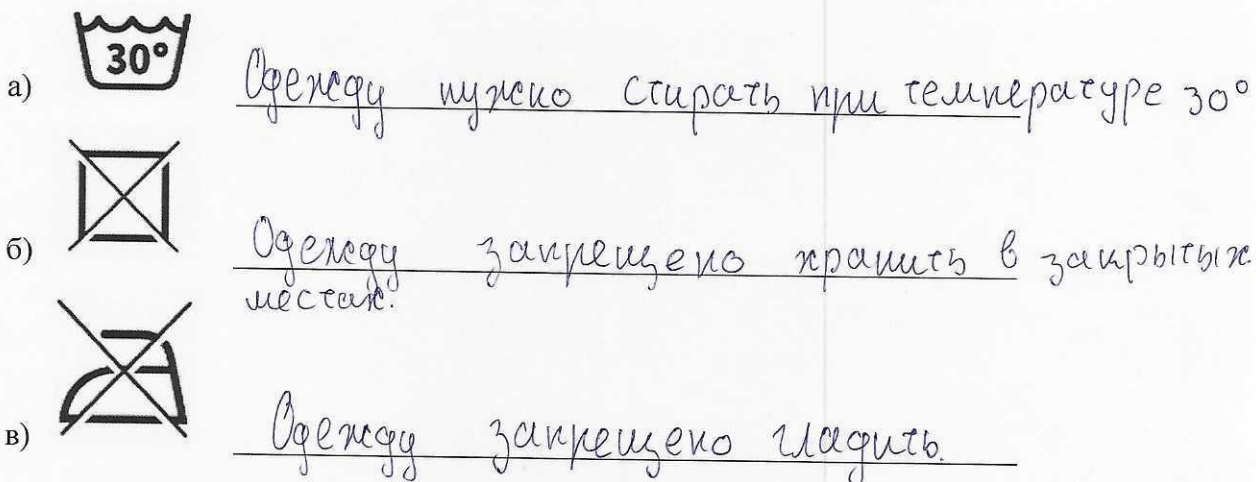 30°
а) Одежду нужно стирать при температуре 30°
б) Одежду запрещено хранить в закрытых
местах.
в) Одежду запрещено гладить.